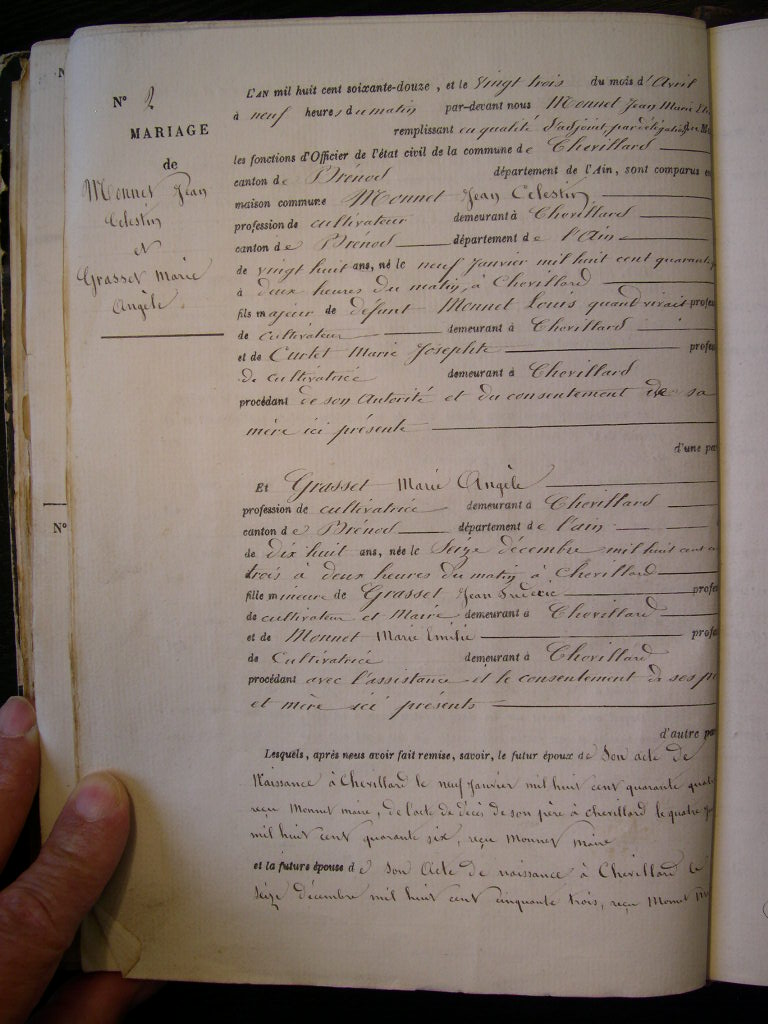 N° 2
MARIAGE
de
Monnet Jean
Celestin
et
Grasset Marie
Angèle.
L'AN mil huit cent soixante-douze, et le Vingt trois du mois d'Avril
à neuf heures du matin par-devant nous Monnet Jean Marie
remplissant en qualité d'adjoint, par délégation du
les fonctions d'Officier de l'état civil de la commune de Chevillard
canton de Brénod département de l'Ain, sont comparus en
maison commune Monnet Jean Celestin
profession de cultivateur demeurant à Chevillard
canton de Brénod département de l'Ain
de vingt huit ans, né le neuf Janvier mil huit cent quarante
à deux heures du matin, à Chevillard
fils majeur de défunt Monnet Louis quand vivait profes
de cultivateur demeurant à Chevillard
et de Curtet Marie Josephte profes
de cultivatrice demeurant à Chevillard
procédant de son autorité et du consentement de sa
mère ici présente
d'une par
Et Grasset Marie Angèle
profession de cultivatrice demeurant à Chevillard
canton de Brénod département de l'ain
de dix huit ans, née le Seize décembre mil huit cent
trois à deux heures du matin à Chevillard
fille mineure de Grasset Jean Fréderic profes
de cultivateur et Maire demeurant à Chevillard
et de Monnet Marie Emilie profes
de Cultivatrice demeurant à Chevillard
procédant avec l'assistance et le consentement de ses p
et mère ici présents
d'autre par
Lesquels, après nous avoir fait remise, savoir, le futur époux de Son acte de
Naissance à Chevillard le neuf Janvier mil huit cent quarante quatre
reçu Monnet maire, de l'acte de décès de son père à Chevillard le quatre
mil huit cent quarante six, reçu Monnet Maire
et la future épouse de son Acte de naissance à Chevillard le
Seize décembre mil huit cent cinquante trois, reçu Monnet
N°